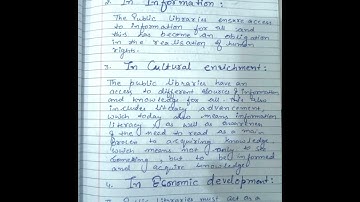 2. In Information:
The Public libraries ensure access
to information for all and
this has become an obligation
in the realisation of human
rights.
3. In Cultural enrichment:
The public libraries have an
access to different sources of information
and knowledge for all. This also
includes literacy advancement,
which today also means information
literacy, as well as awareness
of the need to read as a main
process to acquiring knowledge
which means not only to see
something, but to be informed
and acquire knowledge.
4. In Economic development:
libraries must act as a